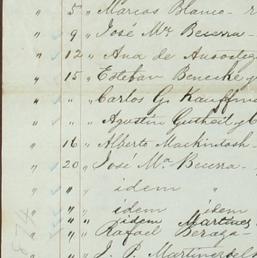 " 5 " Marcos Blanco -
" 9 " José Ma. Becerra -
" 12 " Ana de Ausoteg
" 15 " Esteban Benecke y
" " " Carlos G. Kauffm
" " " Agustin Gutheil y C
" 16 " Alberto Mackintosh
" 20 " José Ma. Becerra -
" " " idem "
" " " idem idem
" " " idem Martinez
" " " Rafael Beraza
" " " J. P. Martinez del